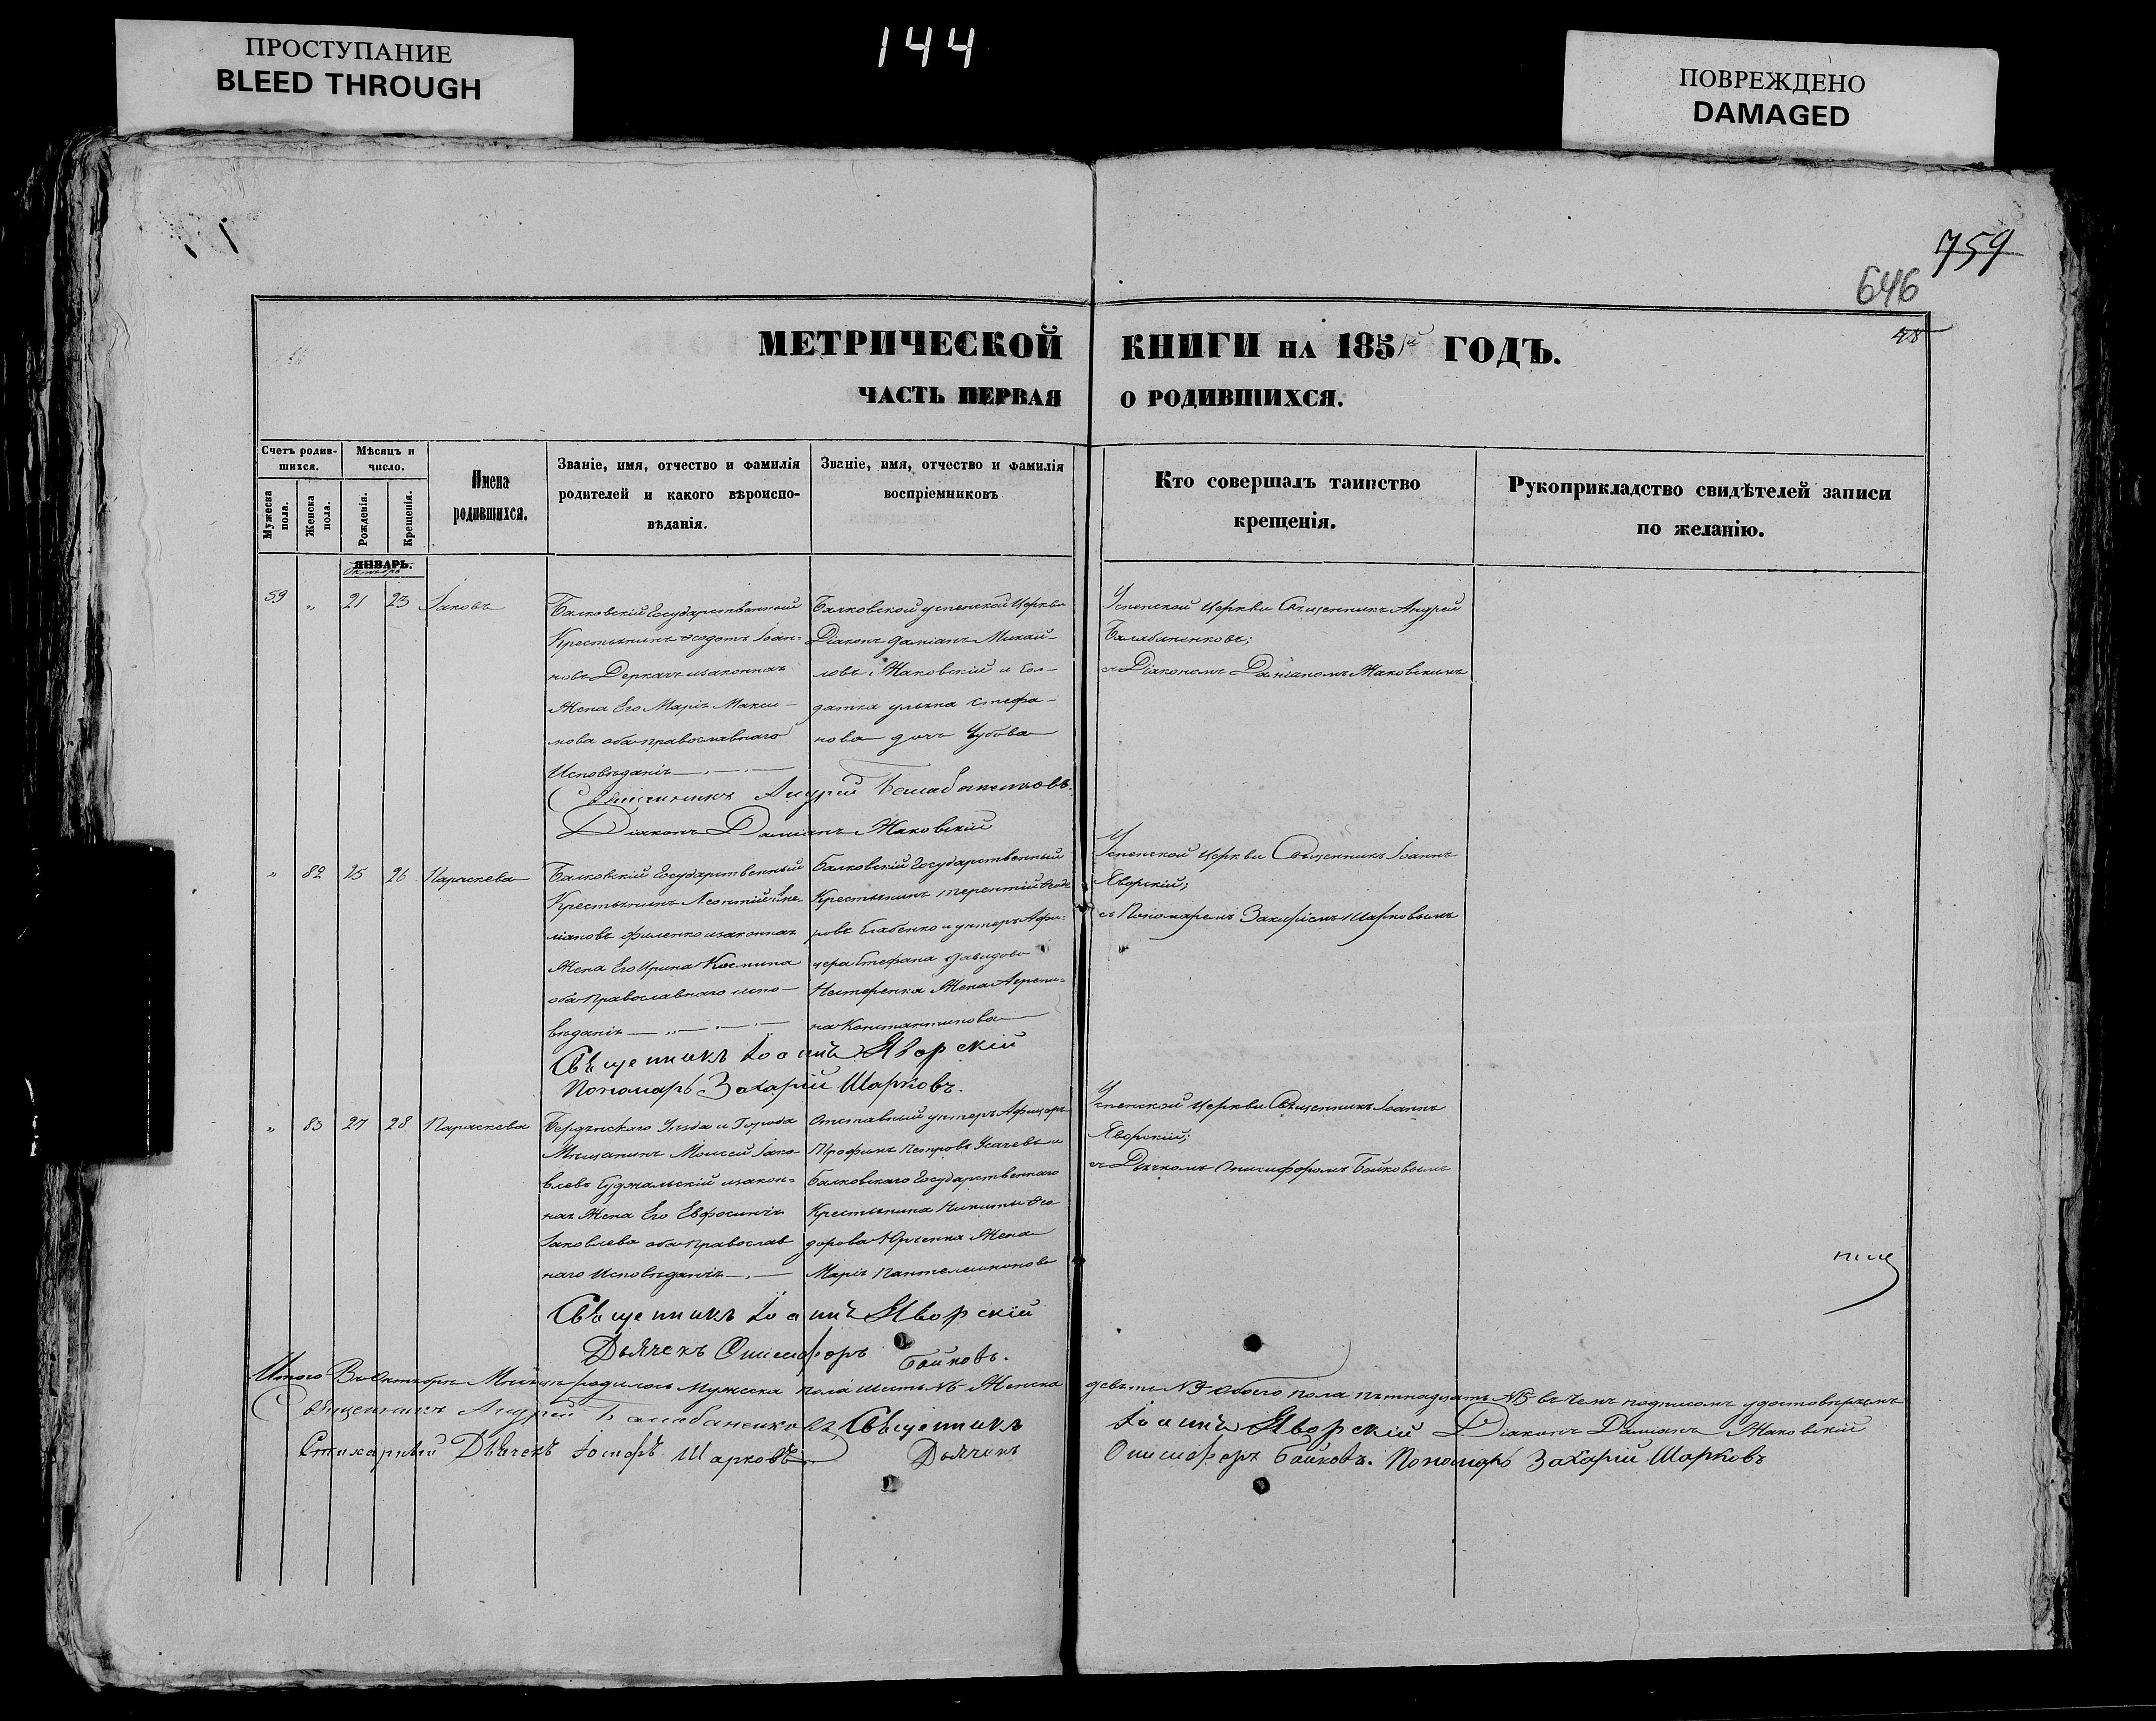 ПРОСТУПАНИЕ
BLEED THROUGH
144
ПОВРЕЖДЕНО
DAMAGED
759
646
МЕТРИЧЕСКОЙ КНИГИ НА 1851й ГОДЪ.
ЧАСТЬ ПЕРВАЯ О РОДИВШИХСЯ.
Счетъ родив-
шихся.
Мужеска пола.
Женска пола.
Мѣсяцъ и
число.
Рожденія.
Крещенія.
Имена
родившихся.
Званіе, имя, отчество и фамилія
родителей и какого вѣроиспо-
вѣданія.
Званіе, имя, отчество и фамилія
воспріемниковъ
Кто совершалъ таинство
крещенія.
Рукоприкладство свидѣтелей записи
по желанію.
ЯНВАРЬ.
Октябрь
59 " 21 23 Іаковъ
Балковскій Государственный
Крестьянинъ Ѳеодотъ Іоан-
новъ Деркачъ изаконная
Жена Его Марія Макси-
мова оба православнаго
Исповѣданія
Балковской успенской Церкви
Діаконъ Даміанъ Михай-
ловъ Жаковскій и Сол-
датка ульяна Стефа-
нова дочь Чубова
Успенской Церкви Священникъ Андрей
Балабаненковъ;
съ Діакономъ Даміаномъ Жаковскимъ
Священникъ Андрей Балабаненковъ
Діаконъ Даміанъ Жаковскій
" 82 25 26 Параскева
Балковскій Государственный
Крестьянинъ Леонтій Еме-
ліановъ филенко изаконная
Жена Его Ирина Космина
оба Православнаго испо-
вѣданія
Балковскій Государственный
Крестьянинъ терентій Ѳеодо
ровъ Слабенко и унтеръ Афи-
цера Стефана Давидова
Нестеренка Жена Агрепи-
на Константинова
Успенской Церкви Священникъ Іоаннъ
Яворскій;
съ Пономаремъ Захаріемъ Шарковымъ
Свѣщенникъ Іоаннъ Яворскій
Пономарь Захарій Шарковъ.
" 83 27 28 Параскева
Бердянскаго Уѣзда и Города
Мѣщанинъ Моисей Іако-
влевъ Суджальскій изакон-
ная Жена Его Евфросинія
Іаковлева оба православ
наго Исповѣданія
Отставный унтеръ Афицеръ
Трофимъ Петровъ Усачевъ и
Балковскаго Государственнаго
Крестьянина Никиты Ѳео
дорова Юрченка Жена
Марія Пантелеимонова
Успенской Церкви Священникъ Іоаннъ
Яворскій;
съ Дьячкомъ Онисифоромъ Байковымъ
Свѣщенникъ Іоаннъ Яворскій
Дьячекъ Онисифоръ Байковъ.
Итого Въ Октябрѣ Мѣсяцѣ родилось Мужеска пола шесть №6 Женска девять №9 обоего пола пятнадцать №15 въ Чемъ подписомъ удостовѣряемъ
Священникъ Андрей Балабаненковъ Свѣщенникъ Іоаннъ Яворскій Діаконъ Даміанъ Жаковскій
Стихарный Дьячекъ Іосифъ Шарковъ Дьячекъ Онисифоръ Байковъ. Пономарь Захарій Шарковъ